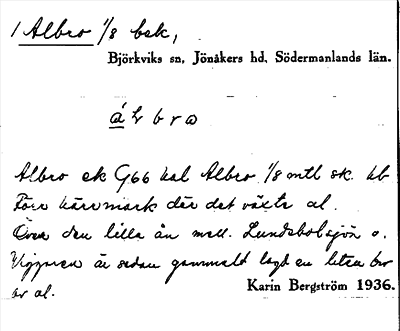 1 Albro 1/8 bek,
Björkviks sn, Jönåkers hd, Södermanlands län.
á l b r ω
Albro ek G66 kal Albro 1/8 mtl sk. kb
Förr kärrmark där det växte al.
Över den lilla ån mell. Lundsbolsjön o.
Viggaren är sedan gammalt lagt en liten bro
av al.
Karin Bergström 1936.